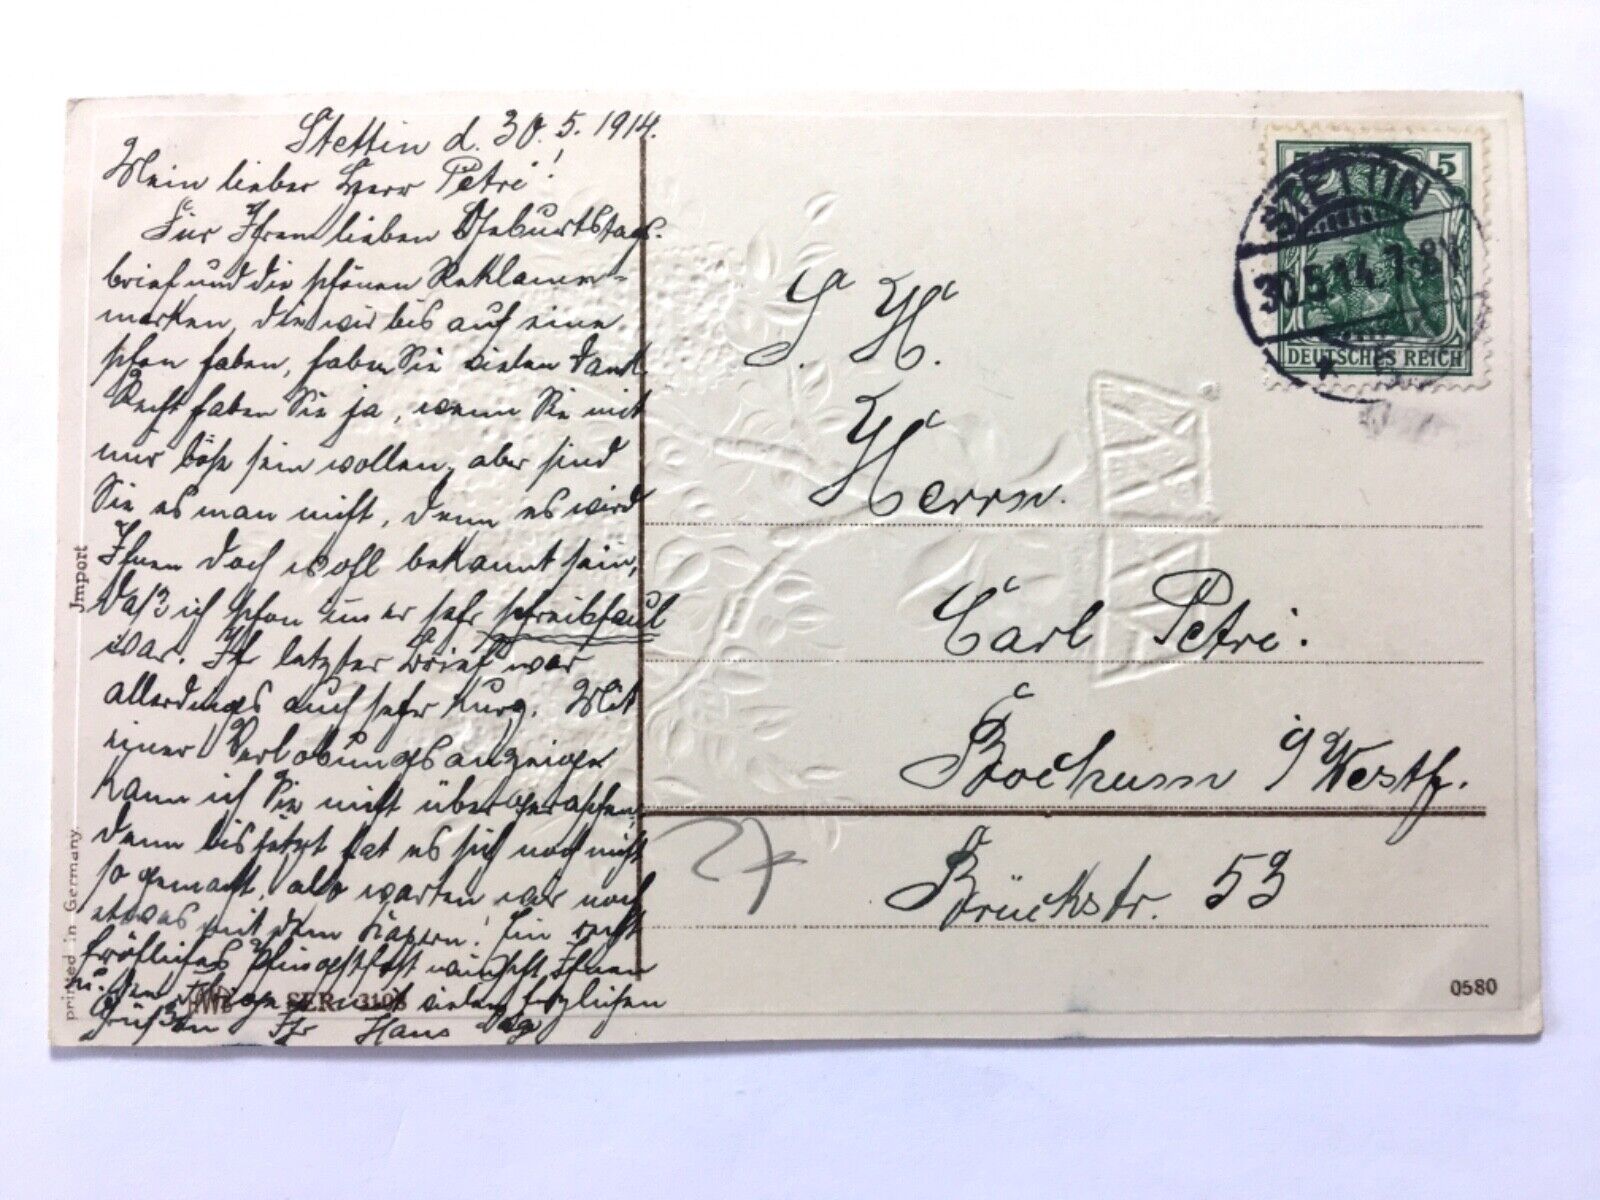 Stettin d. 30.5.1914.
Mein lieber Herr Petri!
Für Ihren lieben Geburtstags-
brief und die schönen Reklame-
marken, die wir bis auf eine
schon haben, haben Sie vielen Dank.
Recht haben Sie ja, wenn Sie mit
mir böse sein wollen, aber sind
Sie es man nicht, denn es wird
Ihnen doch wohl bekannt sein,
daß ich schon immer sehr schreibfaul
war. Ihr letzter Brief war
allerdings auch sehr kurz. Mit
einer Verlobungsanzeige
kann ich Sie nicht überraschen,
denn bis jetzt hat es sich noch nicht
so gemacht, also warten wir noch
etwas mit dem Feiern! Ein recht
fröhliches Pfingstfest wünscht Ihnen
u. den Ihrigen mit vielen herzlichen
Grüßen Ihr Hans
S. H.
Herrn
Carl Petri.
Bochum i/Westf.
Brückstr. 53
27
5 5
DEUTSCHES REICH
STETTIN
30.5.14.7-8N
Import
printed in Germany.
HWB SER 3198
0580